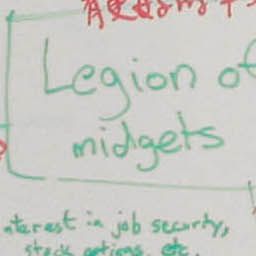 Legion of
midgets
nterest in job security,
stock options, etc.